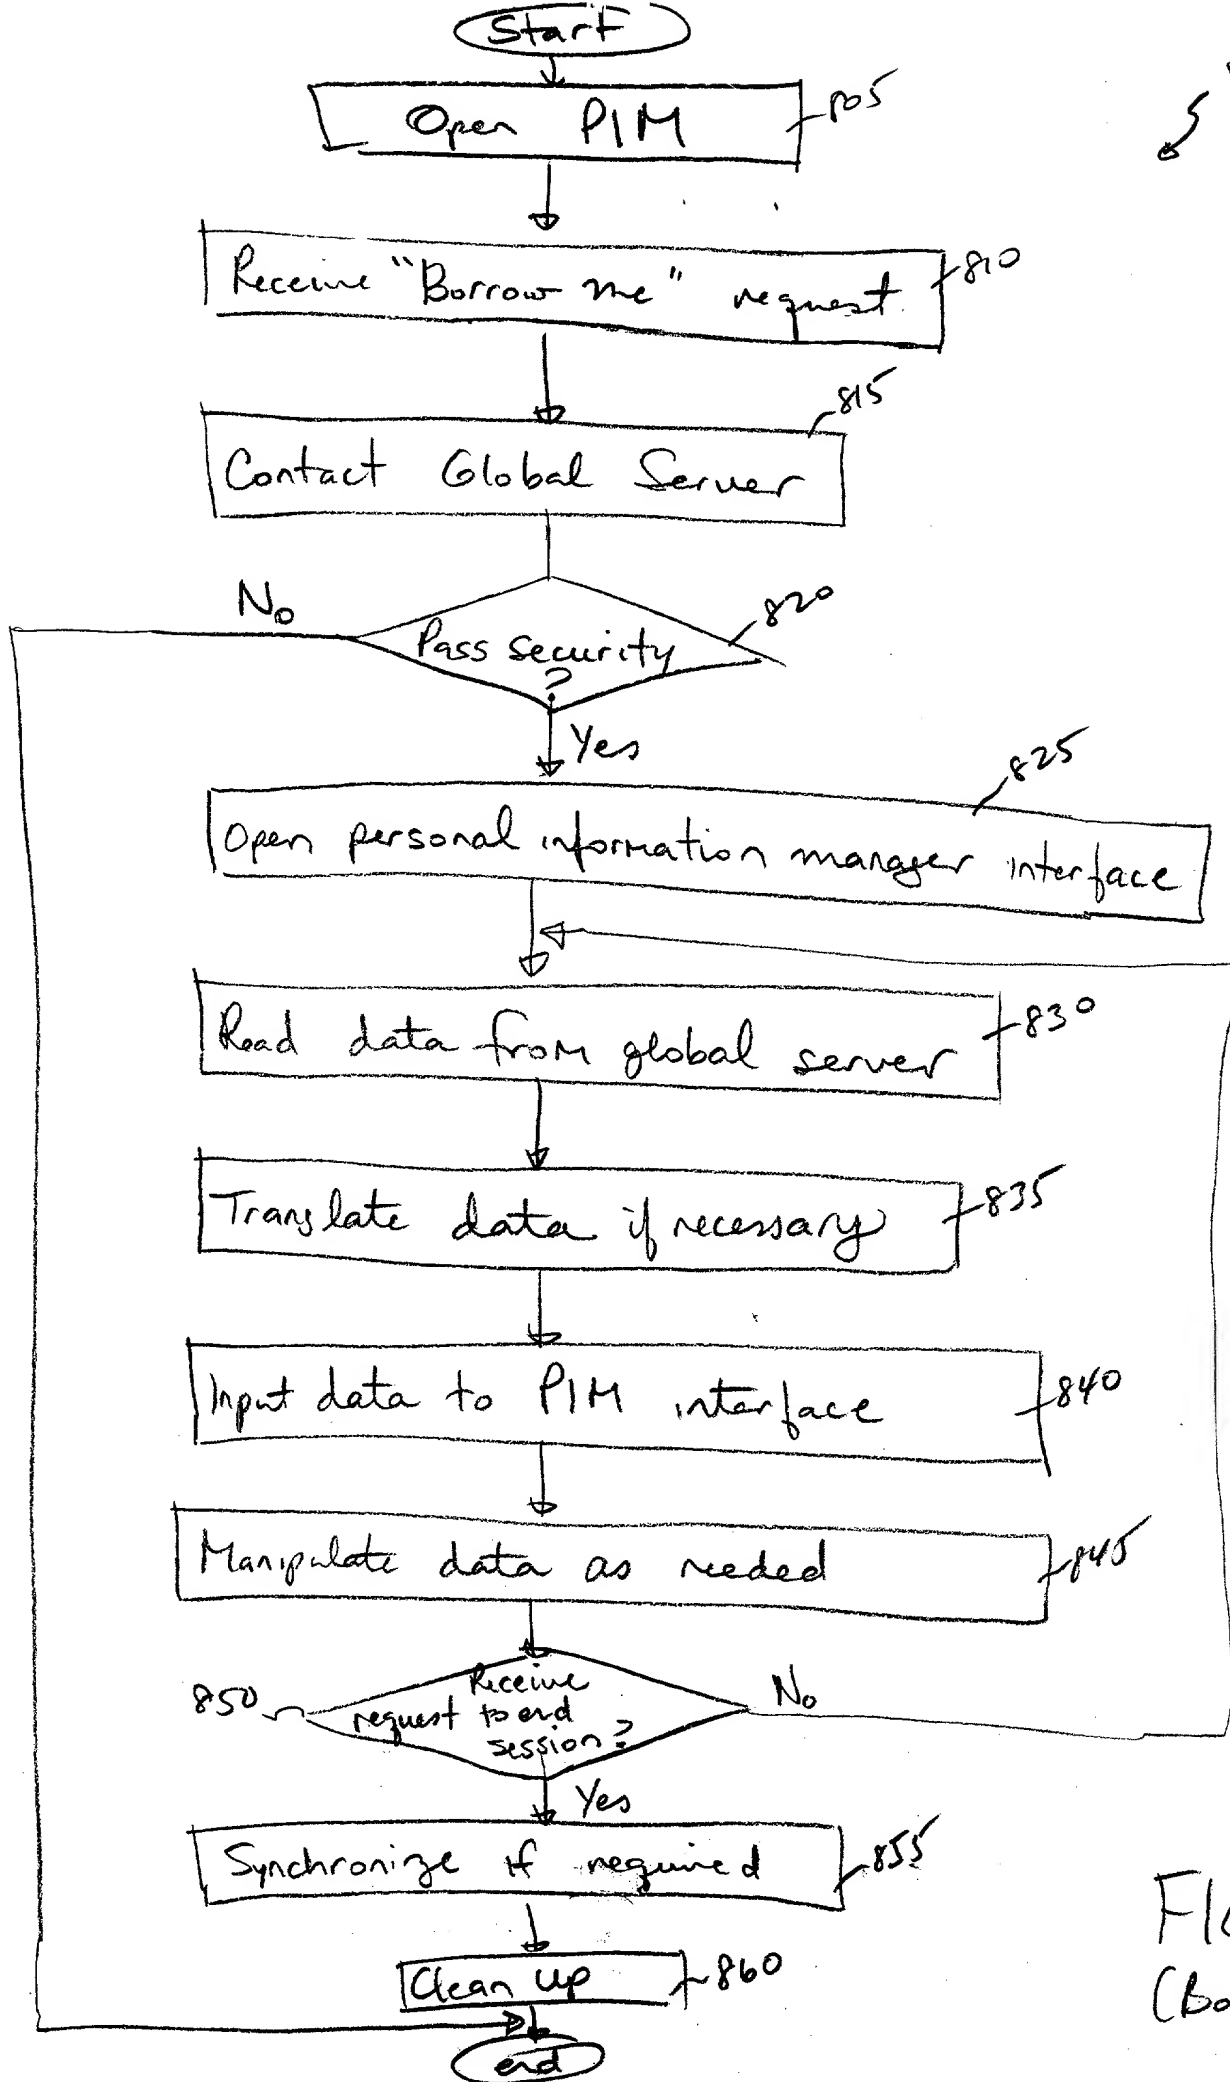 Start
Open PIM
805
Receive "Borrow me" request
810
815
Contact Global Server
No
820
Pass security
?
Yes
825
Open personal information manager interface
Read data from global server
830
Translate data if necessary
835
Input data to PIM interface
840
Manipulate data as needed
845
850
Receive
request to end
session?
No
Yes
Synchronize if required
855
Clean up
860
end